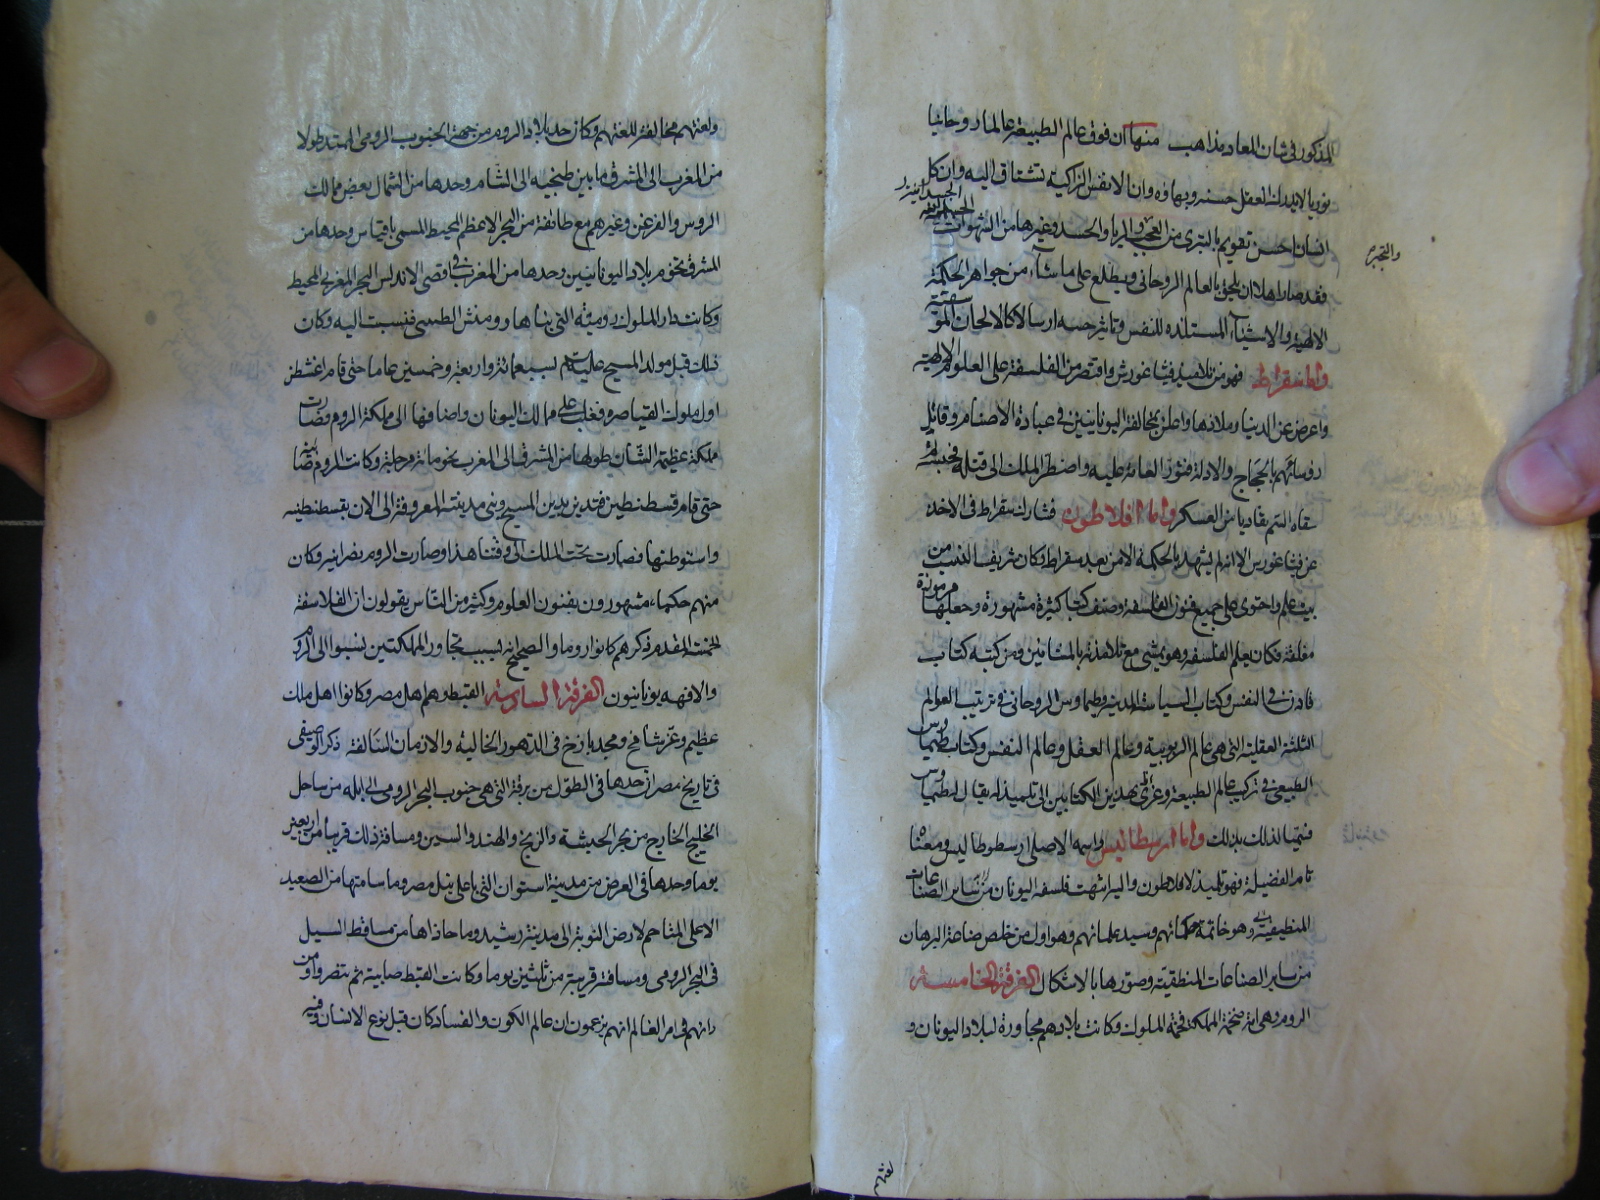 المذكور في شان المعاد مذاهب منها ان فوق عالم الطبيعة عالما روحانيا
نوريا لا يدرك العقل حسنه وبهاؤه وان الانفس الزاكية تشتاق اليه وان كل
انسان احسن تقويم بالتبري من العجب والريا والحسد وغيرها من الشهوات الجسدانية
والتجبر
فقد صار اهلا ان يلحق بالعالم الروحاني ويطلع على ما شاء من جواهر الحكمة
الالهية والاشياء المستلذه للنفس وتاتيه حسه ارسالا كالالحان الموسيقية
واما سقراط فهو من تلاميذ فيثاغورش واقتصر من الفلسفة على العلوم الالهية
واعرض عن الدنيا وملاذها واعلن بمخالفة اليونانيين في عبادة الاصنام وقاتل
روسائهم بالحجاج والادلة فثوروا العامة عليه واضطر الملك الى قتله فحبسه ثم
سقاه السم تفاديا من العسكر واما افلاطون فشارك سقراط في الاخذ
عن فيثاغورس الا انه لم يشهد بالحكمة الا من بعد سقراط وكان شريف النسب من
بيت علم واحتوى على جميع فنون الفلسفة وصنف كتبا كثيرة مشهورة وجعلها مرموزة
مغلقة وكان يعلم الفلسفة وهو يمشي مع تلامذته بالمشائين ومن كتبه كتاب
فادن في النفس وكتاب السياسة المدنية وطيماوس الروحاني في ترتيب العوالم
الثلثة العقلية التي هي عالم الربوبية وعالم العقل وعالم النفس وكتاب طيماوس
الطبيعي في تركيب عالم الطبيعة وعزى بهذين الكتابين الى تلميذ له يقال له طيماوس
فتميا لذلك بذلك واما ارسطاليس واسمه الاصلي ارسطوطاليس ومعناه
تام الفضيلة فهو تلميذ لافلاطون واليه انتهت فلسفة اليونان من سائر الصناعات
المنطيقية وهو خاتمة حكمائهم وسيد علمائهم وهو اول من خلص صناعة البرهان
من ساير الصناعات المنطقية وصورها بالاشكال الفرقة الخامسة
الروم وهي امة ضخمة المملكة فخمة الملوك وكانت بلادهم مجاورة لبلاد اليونان و
لغتهم
ولغتهم مخالفة للغتهم وكان حد بلاد الروم من جهة الجنوب الرومي الممتد طولا
من المغرب الى المشرق ما بين طنجيه الى الشام وحدها من الشمال بعض ممالك
الروس والفرغن وغيرهم مع طائفة من البحر الاعظم المحيط المسمى باقيناس وحدها من
المشرق تخوم بلاد اليونانيين وحدها من المغرب في اقصى الاندلس البحر المغربي المحيط
وكانت دار الملوك رومية التي بناها رومنش الطيبى فنسبت اليه وكان
ذلك قبل مولد المسيح عليه السلام بسبعمائة واربعة وخمسين عاما حتى قام اغشطز
اول ملوك القياصره فغلب على ممالك اليونان واضافها الى مملكة الروم فصارت
مملكة عظيمة الشان طولها من المشرق الى المغرب نحو مائة مرحلة وكانت الروم صابئة
حتى قام قسطنطين فتدين بدين المسيح وبنى مدينته المعروفة الى الان بقسطنطنيه
واستوطنها فصارت تخت الملك الى وقتنا هذا وصارت الروم نصرانيه وكان
منهم حكماء مشهورون بفنون العلوم وكثير من الناس يقولون ان الفلاسفة
الخمسة المقدم ذكرهم كانوا روما والصحيح انه بسبب تجاور المملكتين نسبوا الى الروم
والا فهم يونانيون الفرقة السادسة القبط وهم اهل مصر وكانوا اهل ملك
عظيم وعز شامخ ومجد باذخ في الدهور الخالية والازمان السالفة ذكر الوصيفي
في تاريخ مصر ان حدها في الطول من برقة التي هي جنوب البحر الرومي الى ايله من ساحل
الخليج الخارج من بحر الحبشة والزنج والهند والسين ومسافة ذلك قريبا من اربعين
يوما وحدها في العرض من مدينة اسوان التي باعلى نيل مصر وما سامتها من الصعيد
الاعلى المتاخم لارض النوبة الى مدينة رشيد وما حاذاها من مساقط السيل
في البحر الرومي ومسافة قريبة من ثلثين يوما وكانت القبط صابية ثم تنصروا ومن
رانهم في امر العالم انهم يزعمون ان عالم الكون والفساد كان قبل نوع الانسان وفيه